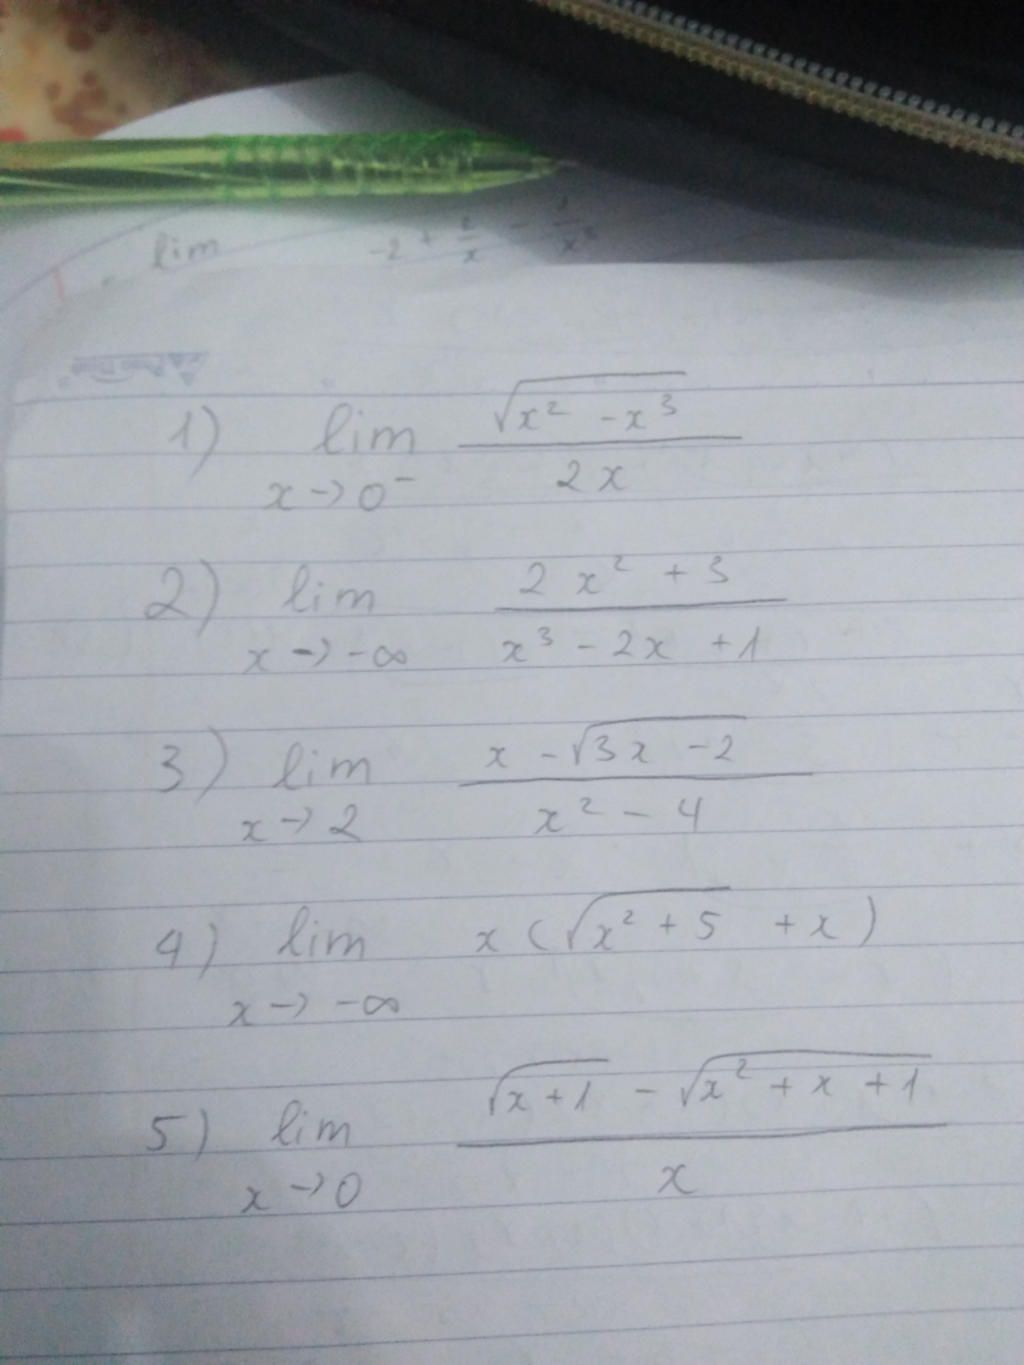 lim -2 + 2/x - 1/x²
1) lim x→0⁻ √(x² - x³) / 2x
2) lim x→-∞ (2x² + 3) / (x³ - 2x + 1)
3) lim x→2 (x - √(3x - 2)) / (x² - 4)
4) lim x→-∞ x(√(x² + 5) + x)
5) lim x→0 (√(x+1) - √(x² + x + 1)) / x